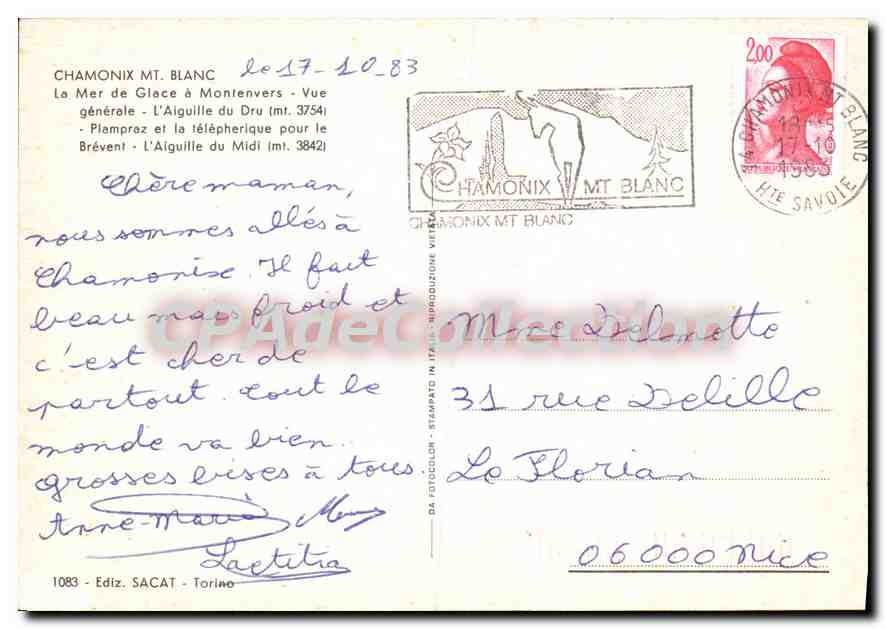 CHAMONIX MT. BLANC
La Mer de Glace à Montenvers - Vue
générale - L'Aiguille du Dru (mt. 3754)
- Plampraz et la télèpherique pour le
Brévent - L'Aiguille du Midi (mt. 3842)
le 17-10-83
Chère maman,
nous sommes allés à
Chamonix. Il fait
beau mais froid et
c'est cher de
partout. Tout le
monde va bien.
grosses bises à tous.
Anne-Marie
Laetitia
1083 - Ediz. SACAT - Torino
DA FOTOCOLOR - STAMPATO IN ITALIA - RIPRODUZIONE VIETATA
CHAMONIX MT BLANC
CHAMONIX MT BLANC
2,00
74 CHAMONIX MT BLANC
17-10
HTE SAVOIE
Mme Delmotte
31 rue Delille
Le Florian
06000 Nice
CPAdeCollection